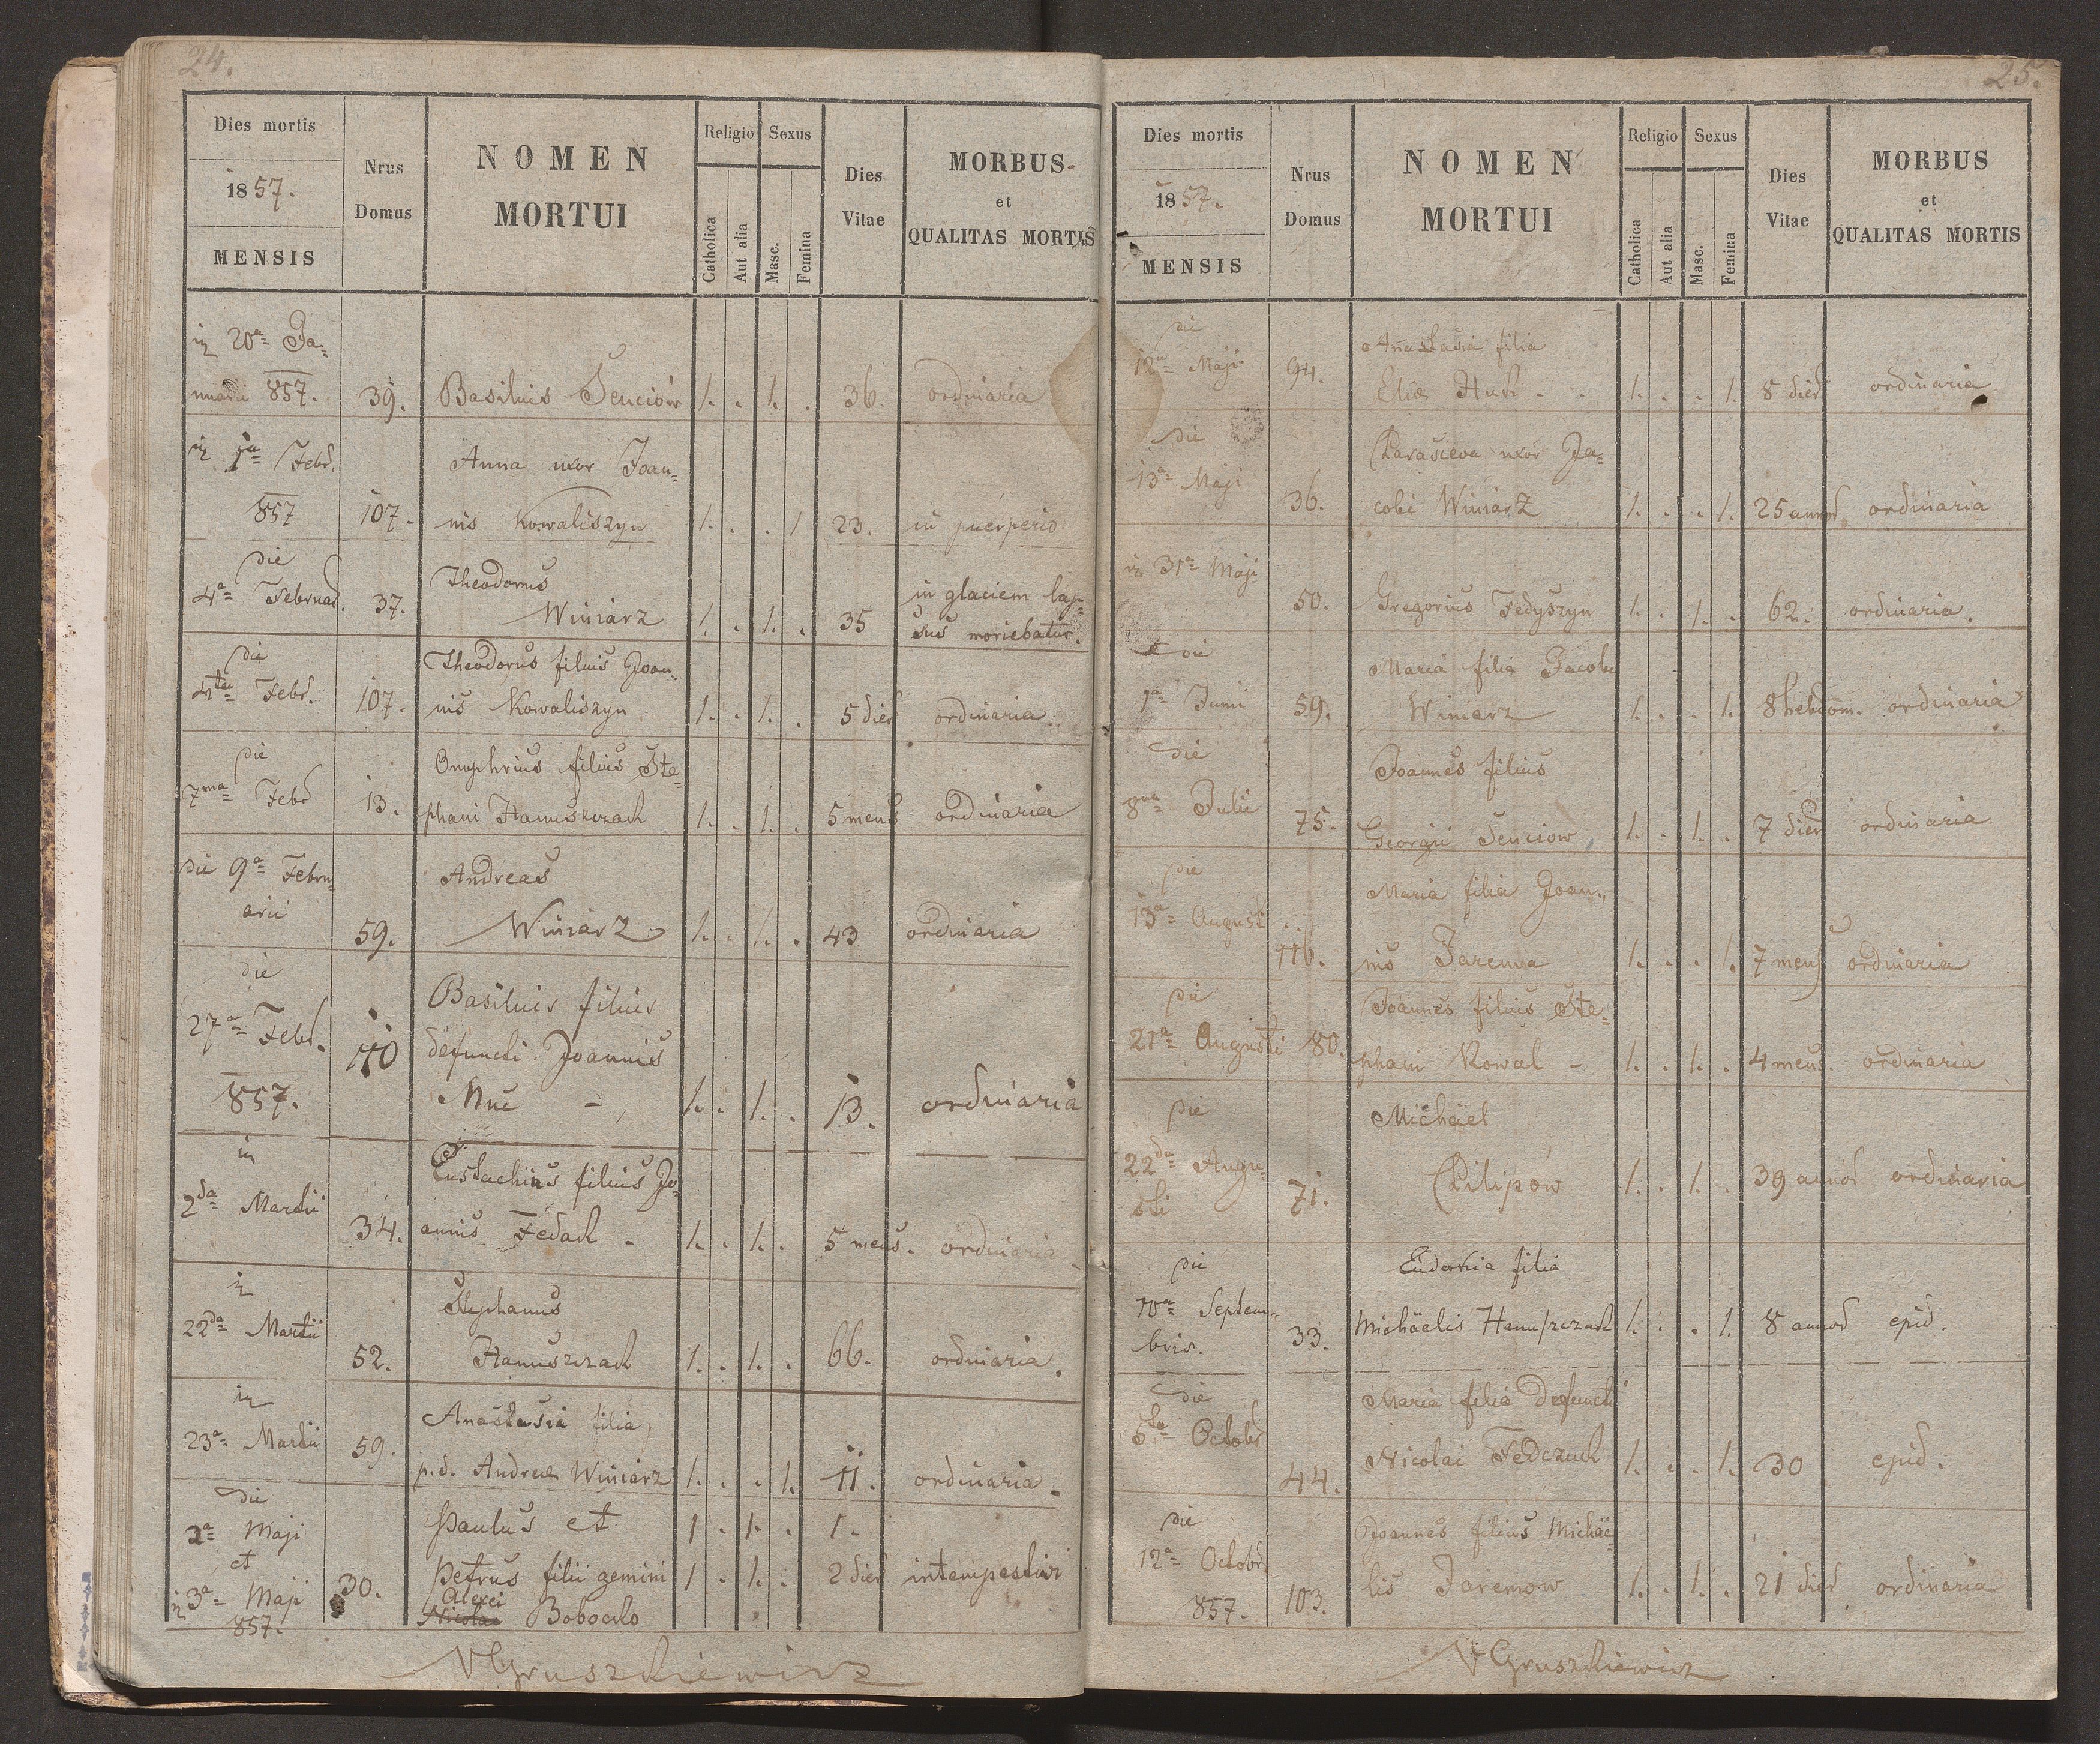 24.
Dies mortis
1857.
MENSIS
Nrus
Domus
NOMEN
MORTUI
Religio
Catholica
Aut alia
Sexus
Masc.
Femina
Dies
Vitae
MORBUS
et
QUALITAS MORTIS
20a Ja-
nuarii 857. 39. Basilius Senciów 1. . 1. . 36. ordinaria
1a Febr. Anna uxor Joan-
857 107. nis Kowaliszyn 1. . . 1 23. in puerperio
die
4a Februar. 37. Theodorus
Winiarz 1. . 1. . 35 in glaciem lap-
sus moriebatur.
die Theodorus filius Joan-
4ta Febr. 107. nis Kowaliszyn 1. . 1. . 5 dier ordinaria
die Onuphrius filius Ste-
7ma Febr 13. phani Hanuszczack 1. . 1. . 5 mens ordinaria
die 9a Febru- Andreas
arii 59. Winiarz 1. . 1. . 43 ordinaria
die Basilius filius
27a Febr. 110 defuncti Joannis
857. Nuc - 1. . 1. . 13. ordinaria
Eustachius filius Jo-
2da Martii 34. annis Fedack - 1. . 1. . 5 mens. ordinaria
Stephanus
22da Martii 52. Hanuszczack 1. . 1. . 66. ordinaria.
Anastasia filia
23a Martii 59. p.d. Andreæ Winiarz 1. . . 1. 11. ordinaria.
die
2a Maji Paulus et 1 . 1. . 1.
et
3a Maji 30. Petrus filii gemini 1 . 1. . 2 dier intempestivi
857. Alexei
Nicolai Boboczko
VGruszkiewicz
25.
Dies mortis
1857.
MENSIS
Nrus
Domus
NOMEN
MORTUI
Religio
Catholica
Aut alia
Sexus
Masc.
Femina
Dies
Vitae
MORBUS
et
QUALITAS MORTIS
die Anastasia filia
12a Maji 94. Eliæ Huk - 1. . . 1. 8 dier ordinaria
die Parasceva uxor Ja-
13a Maji 36. cobi Winiarz 1. . . 1. 25 annor ordinaria
31a Maji
50. Gregorius Fedyszyn 1. . 1. . 62. ordinaria.
die Maria filia Jacobi
1a Junii 59. Winiarz 1. . . 1. 8 hebdom. ordinaria
die Joannes filius
8va Julii 75. Georgii Senciow 1. . 1. . 7 dier ordinaria
die Maria filia Joan-
13a August
116. nis Jarema 1. . . 1. 7 mens ordinaria
die Joannes filius Ste-
21a Augusti 80. phani Kowal - 1. . 1. . 4 mens. ordinaria
die Michäel
22da Augu-
sti 71. Pilipow 1. . 1. . 39 annor ordinaria
die Eudokia filia
10a Septem-
bris. 33. Michäelis Hanuszczack 1. . . 1. 8 annor epid.
die Maria filia defuncti
5ta Octobr
44. Nicolai Fedczuck 1. . . 1. 30 epid.
die Joannes filius Michäe-
12a Octobr.
857. 103. lis Jaremow 1. . 1. . 21 dier ordinaria
VGruszkiewicz